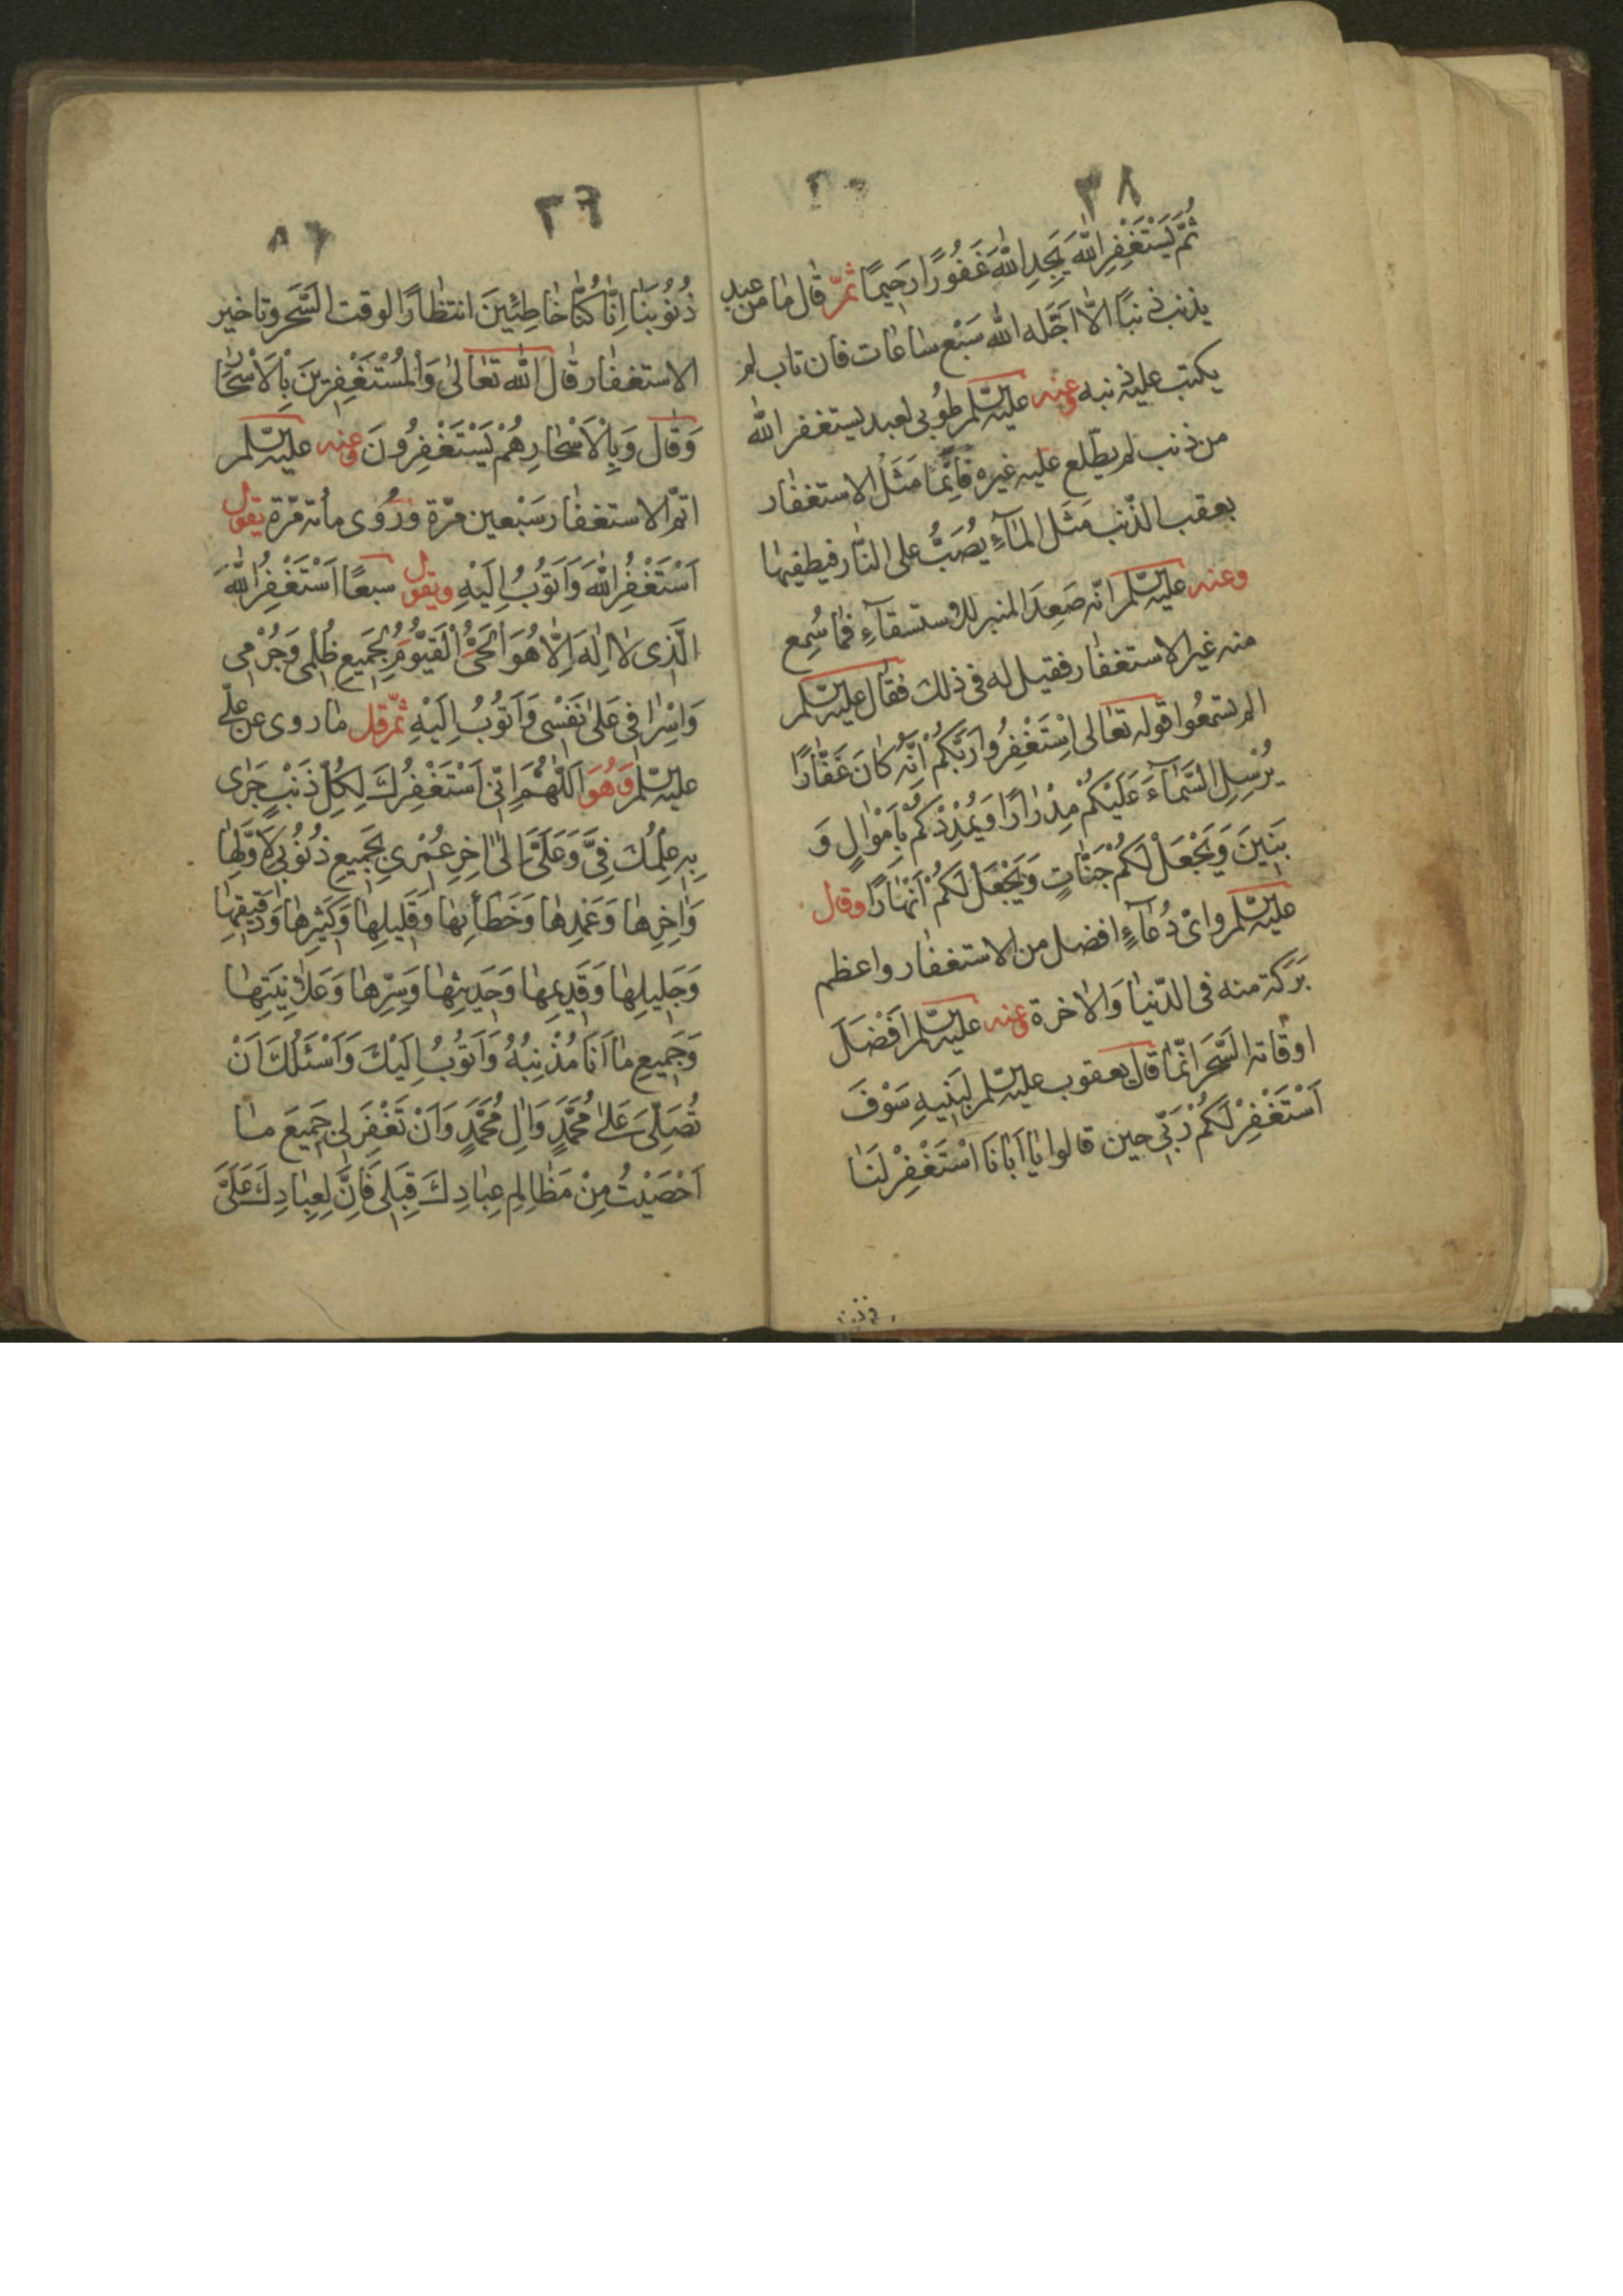 ٣٨
ثُمَّ يَسْتَغْفِرِ اللهَ يَجِدِ اللهَ غَفُورًا رَحِيمًا ثمّ قال ما من عبد
يذنب ذنبًا الّا اجّله الله سَبْع ساعات فان تاب لم
يكتب عليه ذنبه وعنه عليه السّلم طُوبى لعبد يستغفر الله
من ذنب لم يطّلع عليه غيره فَاِنَّما مَثَلُ الاستغفار
بعقب الذّنب مَثَل المآءِ يُصَبُّ على النّار فيطفيها
وعنه عليه السّلم انّه صَعِدَ المنبر للاستسقآءِ فما سُمِع
منه غير الاستغفار فقيل له فى ذلك فقال عليه السّلم
الم تسمعُوا قوله تعالى اِسْتَغْفِرُوا رَبَّكُمْ اِنَّهُ كانَ غَفّارًا
يُرْسِلِ السَّمآءَ عَلَيْكُمْ مِدْرارًا وَيُمْدِدْكُمْ بِاَمْوالٍ وَ
بَنِينَ وَيَجْعَلْ لَكُمْ جَنّاتٍ وَيَجْعَلْ لَكُمْ اَنْهارًا وقال
عليه السّلم واىّ دُعآءٍ افضل من الاستغفار واعظم
بَرَكة منه فى الدّنيا وَالاخرة وعنه عليه السّلم اَفْضَلَ
اوقاته السَّحَر انّما قال يعقوب عليه السّلم لِبَنِيهِ سَوْفَ
اَسْتَغْفِرْ لَكُمْ رَبّى حين قالوا يا اَبانَا اسْتَغْفِرْ لَنا
ذُنُوبَنا اِنّا كُنّا خاطِئِينَ انتظارًا لوقت السَّحَر وتاخير
الاستغفار قال الله تعالى وَالْمُسْتَغْفِرِينَ بِالْاَسْحار
وَقال وَبِالْاَسْحارِ هُمْ يَسْتَغْفِرُونَ وعنه عليه السّلم
اتمّ الاستغفار سَبْعين مرّة ورُوى مائة مرّة يقول
اَسْتَغْفِرُ اللهَ وَاَتُوبُ اِلَيْهِ ويقول سبعًا اَسْتَغْفِرُ اللهَ
الَّذِى لا اِلهَ اِلّا هُوَ الْحَىُّ الْقَيُّومُ لِجَمِيعِ ظُلْمِى وَجُرْمِى
وَاِسْرافِى عَلى نَفْسِى وَاَتُوبُ اِلَيْهِ ثمّ قل ما روى عن علىّ
عليه السّلم وَهُوَ اَللّهُمَّ اِنّى اَسْتَغْفِرُكَ لِكُلِّ ذَنْبٍ جَرى
بِهِ عِلْمُكَ فِىَّ وَعَلَىَّ اِلى اخِرِ عُمْرِى بِجَمِيعِ ذُنُوبِى لِاَوَّلِها
وَاخِرِها وَعَمْدِها وَخَطَائِها وَقَلِيلِها وَكَثِيرِها وَدَقِيقِها
وَجَلِيلِها وَقَدِيمِها وَحَدِيثِها وَسِرِّها وَعَلانِيَتِها
وَجَمِيعِ ما اَنَا مُذْنِبُهُ وَاَتُوبُ اِلَيْكَ وَاَسْئَلُكَ اَنْ
تُصَلِّىَ عَلى مُحَمَّدٍ وَالِ مُحَمَّدٍ وَاَنْ تَغْفِرَ لِى جَمِيعَ ما
اَحْصَيْتُ مِنْ مَظالِمِ عِبادِكَ قِبَلِى فَاِنَّ لِعِبادِكَ عَلَىَّ